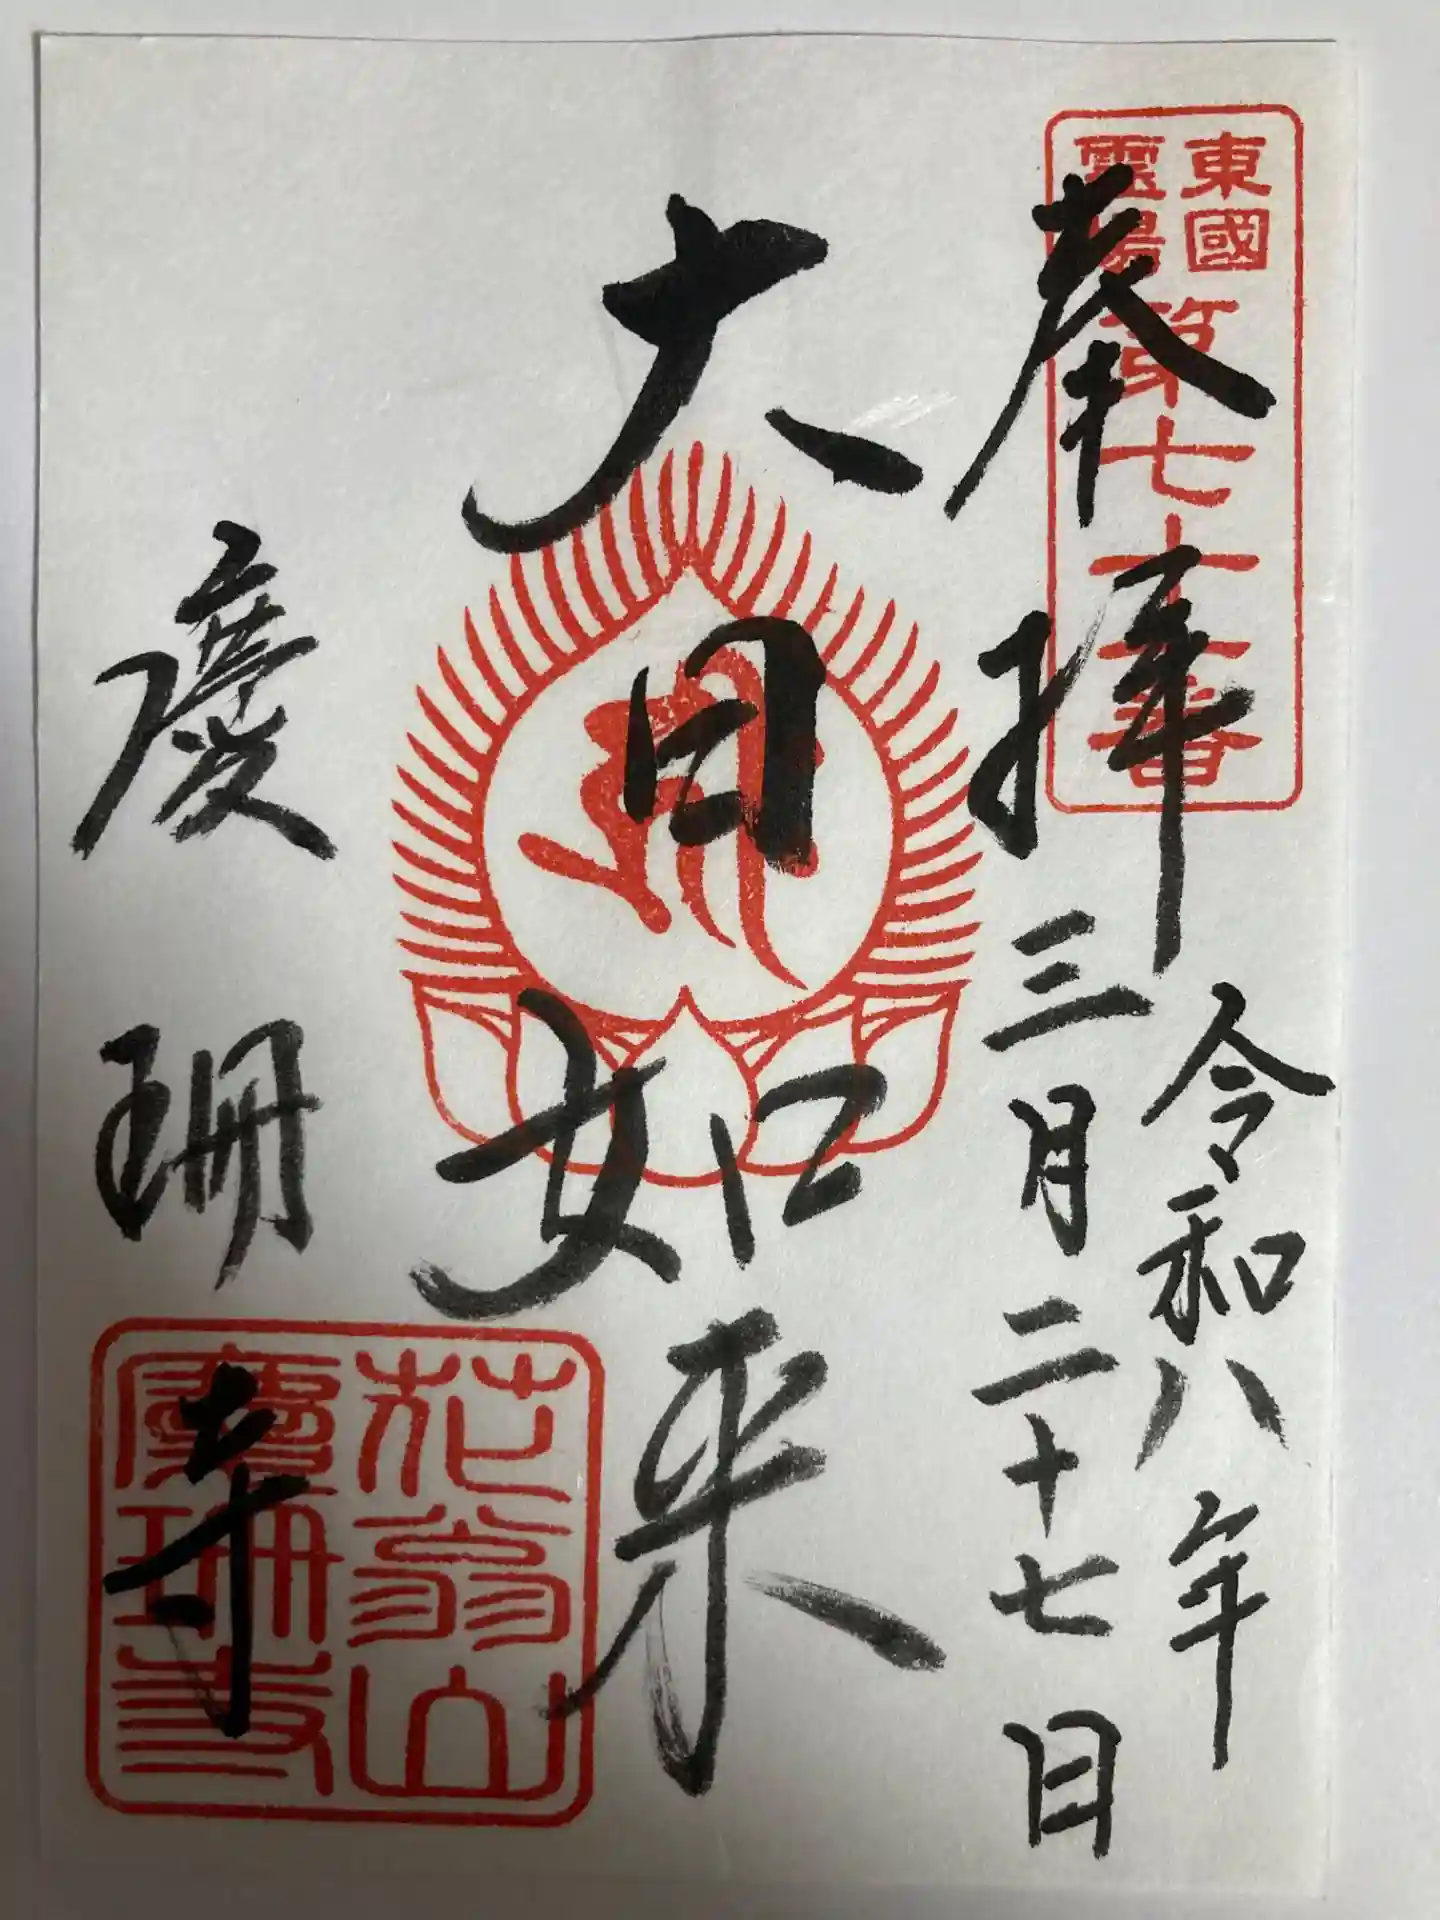 東國
霊場
第七十
番
奉拝
令和八年
三月二十七日
大日如来
慶珊寺
花翁山
慶珊寺